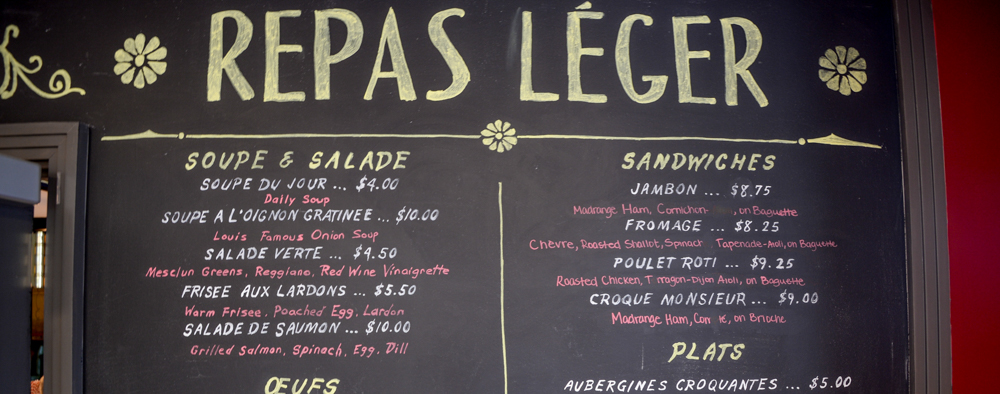 REPAS LÉGER
SOUPE & SALADE
SOUPE DU JOUR ... $4.00
Daily Soup
SOUPE A L'OIGNON GRATINEE ... $10.00
Louis Famous Onion Soup
SALADE VERTE ... $4.50
Mesclun Greens, Reggiano, Red Wine Vinaigrette
FRISEE AUX LARDONS ... $5.50
Warm Frisee, Poached Egg, Lardon
SALADE DE SAUMON ... $10.00
Grilled Salmon, Spinach, Egg, Dill
ŒUFS
SANDWICHES
JAMBON ... $8.75
Madrange Ham, Cornichon , on Baguette
FROMAGE ... $8.25
Chevre, Roasted Shallot, Spinach Tapenade-Aioli, on Baguette
POULET ROTI ... $9.25
Roasted Chicken, T rragon-Dijon Aioli, on Baguette
CROQUE MONSIEUR ... $9.00
Madrange Ham, on Brioche
PLATS
AUBERGINES CROQUANTES ... $5.00